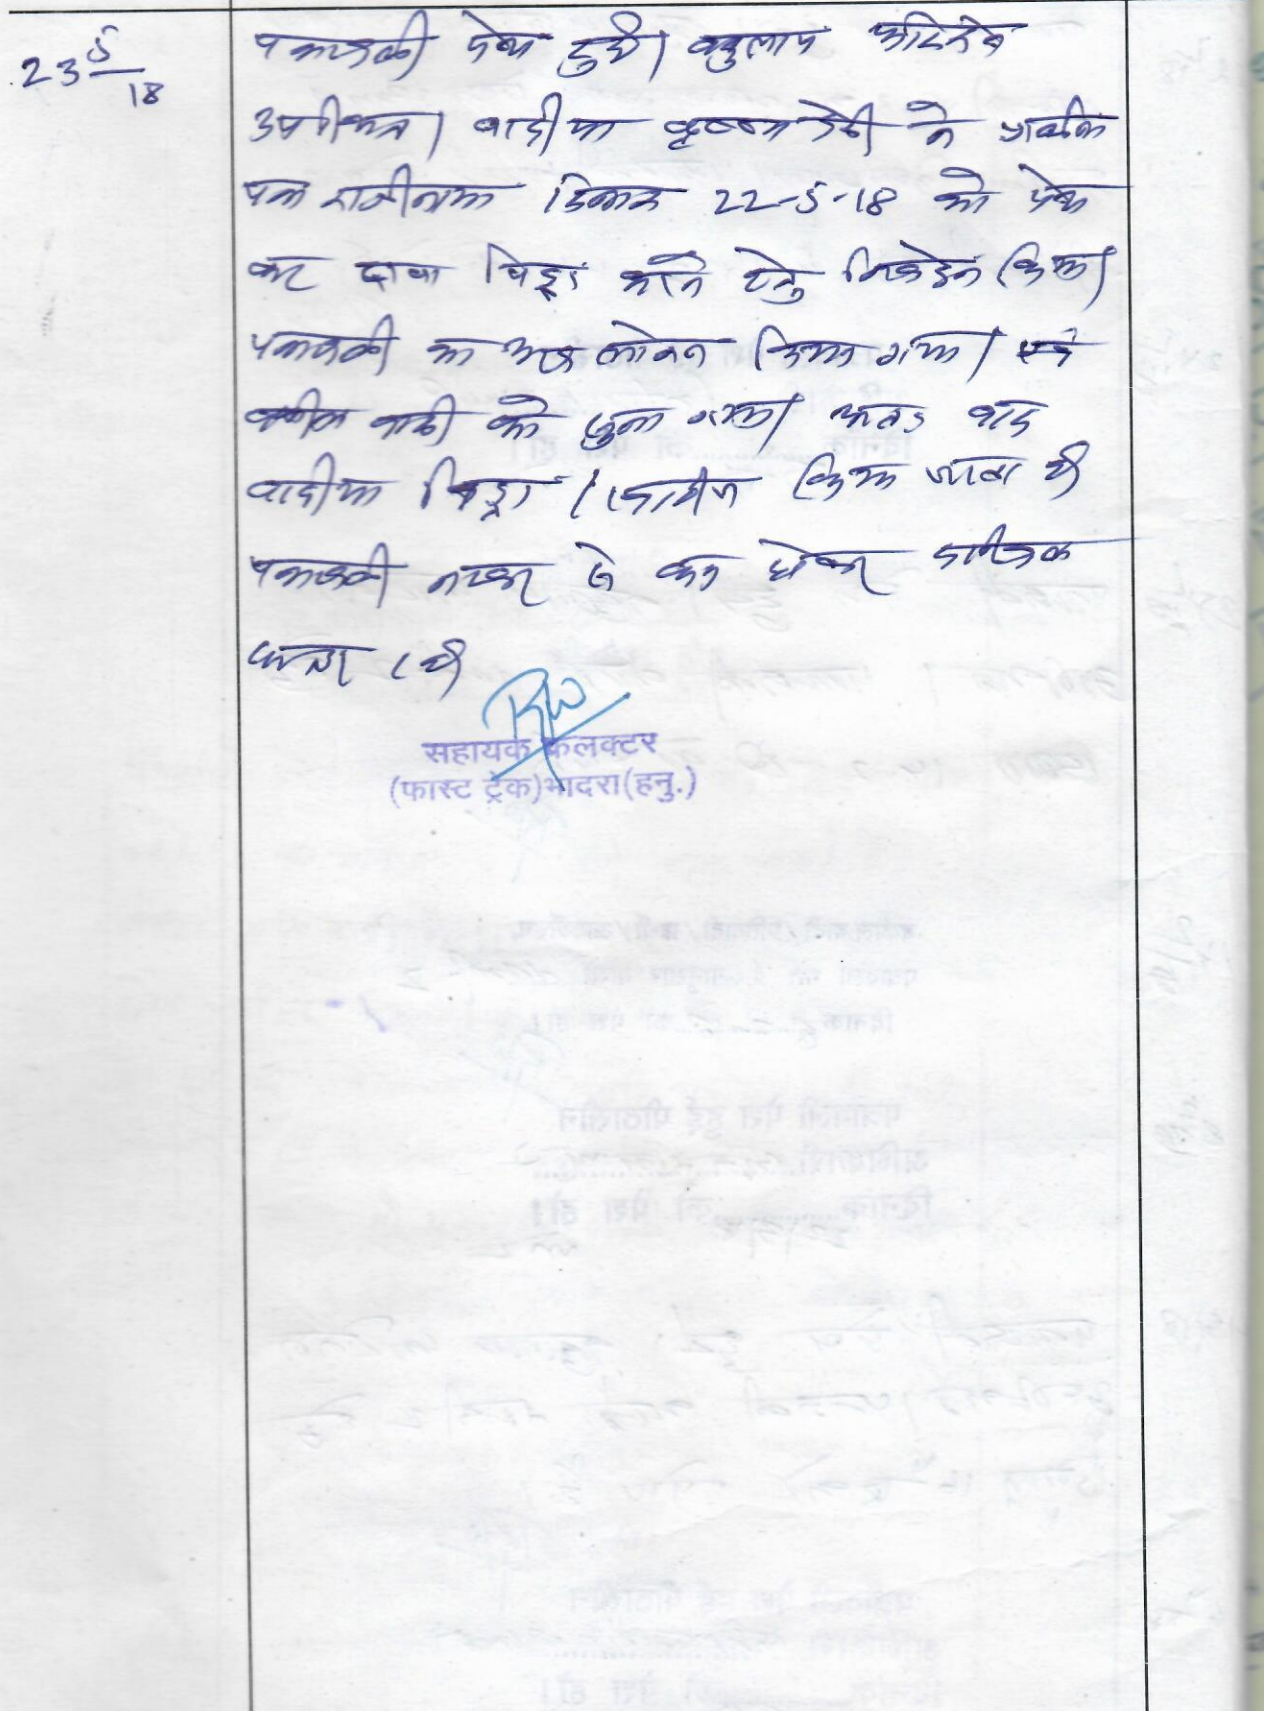 23 5/18
पत्रावली पेश हुयी। वकुलाय फरिकेन
उपस्थित। वादीया कृष्णा देवी ने
पत्र राजीनामा दिनांक 22-5-18 को पेश
कर दावा विड्रा करने हेतु निवेदन किया।
पत्रावली का अवलोकन किया गया। एवं
वकील वादी को सुना गया। अतः वाद
वादीया विड्रा खारीज किया जाता है।
पत्रावली नम्बर से कम होकर दाखिल
दफ्तर हो।
सहायक कलक्टर
(फास्ट ट्रेक)भादरा(हनु.)